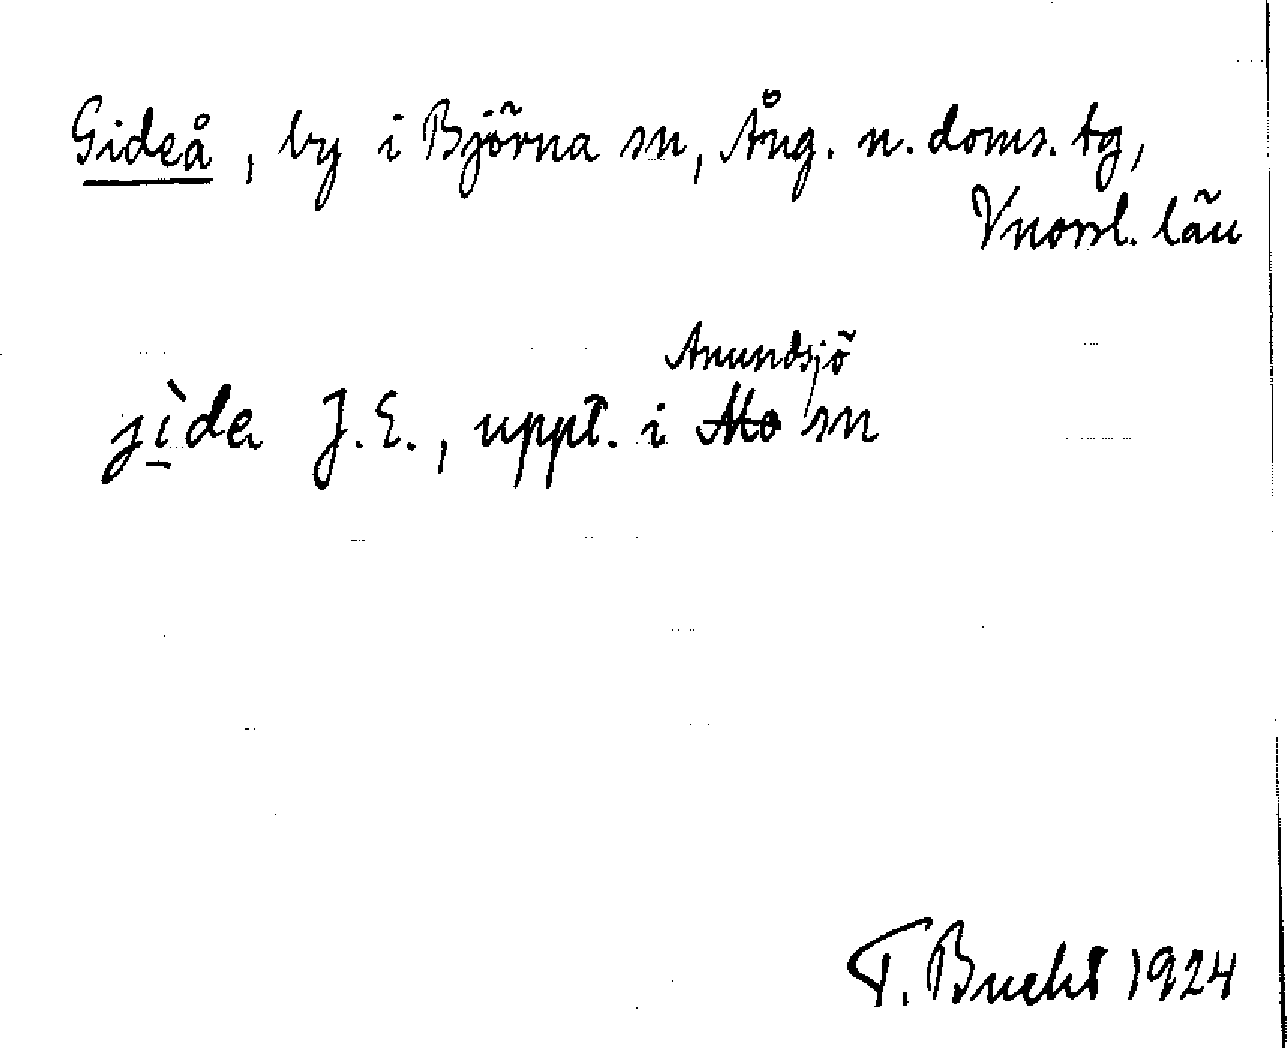 Gideå, by i Björna sn, Ång. n. doms. tg,
Vnorrl. län
Anundsjö
jìde J.E., uppt. i Mo sn
T. Bucht 1924